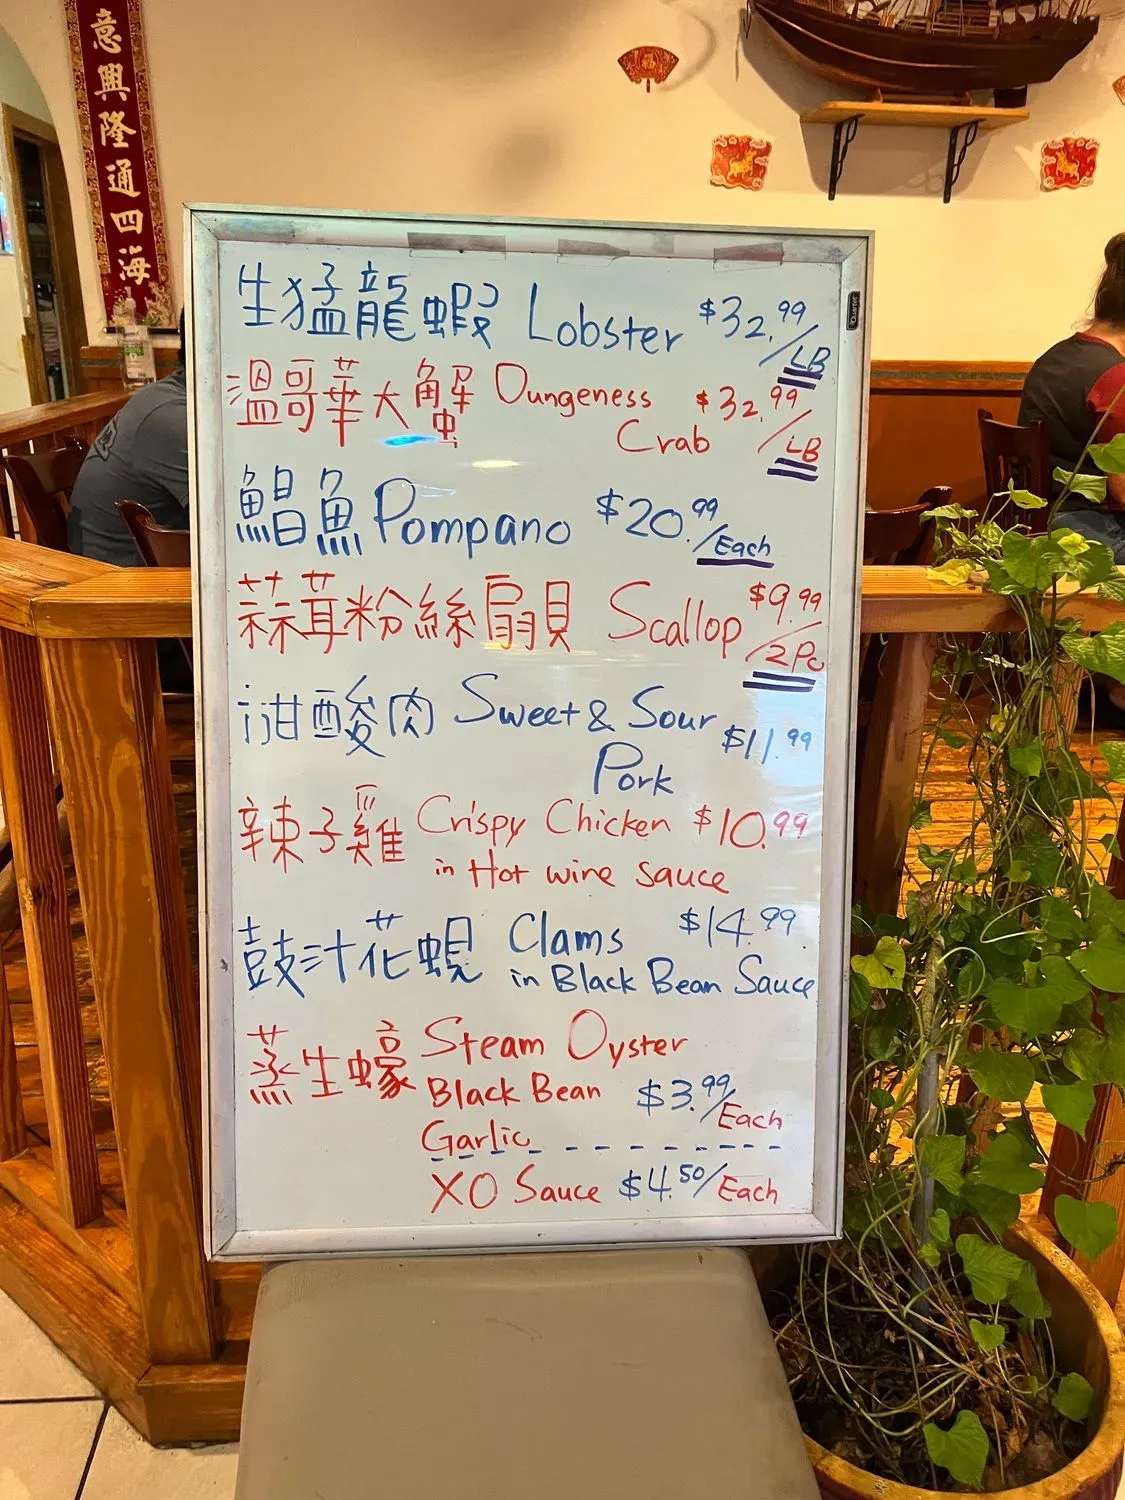 意興隆通四海
生猛龍蝦 Lobster $32.99/LB
溫哥華大蟹 Dungeness Crab $32.99/LB
鯧魚 Pompano $20.99/Each
蒜茸粉絲扇貝 Scallop $9.99/2Pc
甜酸肉 Sweet & Sour $11.99
Pork
辣子雞 Crispy Chicken $10.99
in Hot wine sauce
鼓汁花蜆 Clams $14.99
in Black Bean Sauce
蒸生蠔 Steam Oyster
Black Bean $3.99/Each
Garlic
XO Sauce $4.50/Each